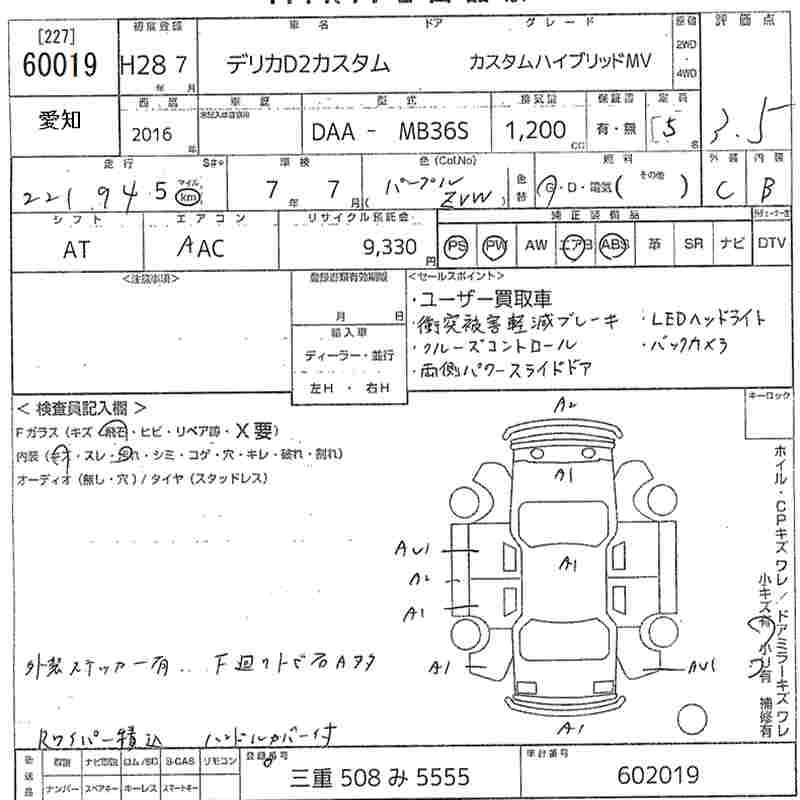 車名 ドア グレード
[227] 初度登録 評価点
60019 H28 7 デリカD2カスタム カスタムハイブリッドMV 2WD・4WD
年 月
愛知 型式 排気量 保証書 定員
2016 年 DAA - MB36S 1,200 CC 有・無 [5 名 3.5
走行 車検 色(Col.No) 燃料 外装 内装
221945 マイル km 7年 7月 パープル ZVW 色替 G・D・電気( その他 ) C B
シフト エアコン リサイクル預託金 純正装備品
AT AAC 9,330円 PS PW AW エアB ABS 革 SR ナビ DTV
<注意事項> 登録書類有効期限 <セールスポイント>
・ユーザー買取車
月 日 ・衝突被害軽減ブレーキ ・LEDヘッドライト
輸入車 ・クルーズコントロール ・バックカメラ
ディーラー・並行 ・両側パワースライドドア
左H・右H
<検査員記入欄> キーロック
Fガラス(キズ・飛石・ヒビ・リペア跡・X要)
内装(キズ・スレ・汚れ・シミ・コゲ・穴・キレ・破れ・割れ)
オーディオ(無し・穴)/タイヤ(スタッドレス)
A2
A1
AU1
A1
A2
A1
A1
AU1
A1
ホイル・CPキズ ワレ/ドアミラーキズ ワレ
小キズ有 小凹有 補修有
外装ステッカー有 F廻り下ビ石Aヌタ
Rワイパー積込 ハンドルカバー付
後送品 取説 ナビ取説 ロム/SD B-CAS リモコン 登録番号 車台番号
ナンバー スペアキー キーレス スマートキー 三重 508 み 5555 602019